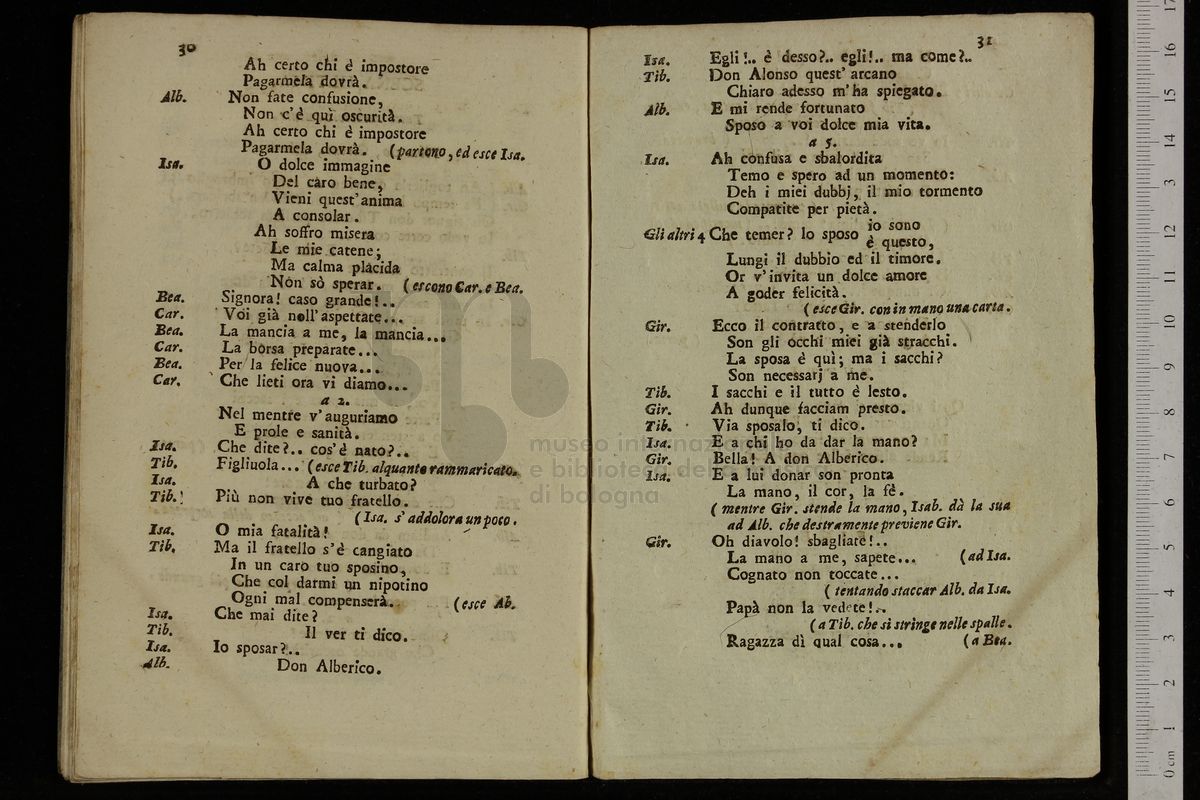 30
Ah certo chi è impostore
Pagarmela dovrà.
Alb. Non fate confusione,
Non c'è quì oscurità.
Ah certo chi è impostore
Pagarmela dovrà. (partono, ed esce Isa.
Isa. O dolce immagine
Del caro bene,
Vieni quest'anima
A consolar.
Ah soffro misera
Le mie catene;
Ma calma placida
Non sò sperar. (escono Car. e Bea.
Bea. Signora! caso grande!..
Car. Voi già nell'aspettate...
Bea. La mancia a me, la mancia...
Car. La borsa preparate...
Bea. Per la felice nuova...
Car. Che lieti ora vi diamo...
a 2.
Nel mentre v'auguriamo
E prole e sanità.
Isa. Che dite?.. cos'è nato?..
Tib. Figliuola... (esce Tib. alquanto rammaricato.
Isa. A che turbato?
Tib. Più non vive tuo fratello.
(Isa. s'addolora un poco.
Isa. O mia fatalità!
Tib. Ma il fratello s'è cangiato
In un caro tuo sposino,
Che col darmi un nipotino
Ogni mal compenserà. (esce Ab.
Isa. Che mai dite?
Tib. Il ver ti dico.
Isa. Io sposar?..
Alb. Don Alberico.
31
Isa. Egli!.. è desso?.. egli!.. ma come?..
Tib. Don Alonso quest' arcano
Chiaro adesso m'ha spiegato.
Alb. E mi rende fortunato
Sposo a voi dolce mia vita.
a 5.
Isa. Ah confusa e sbalordita
Temo e spero ad un momento:
Deh i miei dubbj, il mio tormento
Compatite per pietà.
Gli altri 4 Che temer? lo sposo io sono
è questo,
Lungi il dubbio ed il timore.
Or v'invita un dolce amore
A goder felicità.
(esce Gir. con in mano una carta.
Gir. Ecco il contratto, e a stenderlo
Son gli occhi miei già stracchi.
La sposa è quì; ma i sacchi?
Son necessarj a me.
Tib. I sacchi e il tutto è lesto.
Gir. Ah dunque facciam presto.
Tib. Via sposalo, ti dico.
Isa. E a chi ho da dar la mano?
Gir. Bella! A don Alberico.
Isa. E a lui donar son pronta
La mano, il cor, la fè.
(mentre Gir. stende la mano, Isab. dà la sua
ad Alb. che destramente previene Gir.
Gir. Oh diavolo! sbagliate!..
La mano a me, sapete... (ad Isa.
Cognato non toccate...
(tentando staccar Alb. da Isa.
Papà non la vedete!..
(a Tib. che si stringe nelle spalle.
Ragazza dì qual cosa... (a Bea.
museo internaz
e biblioteca della
di bologna
0 cm 1 2 3 4 5 6 7 8 9 10 11 12 13 14 15 16 17